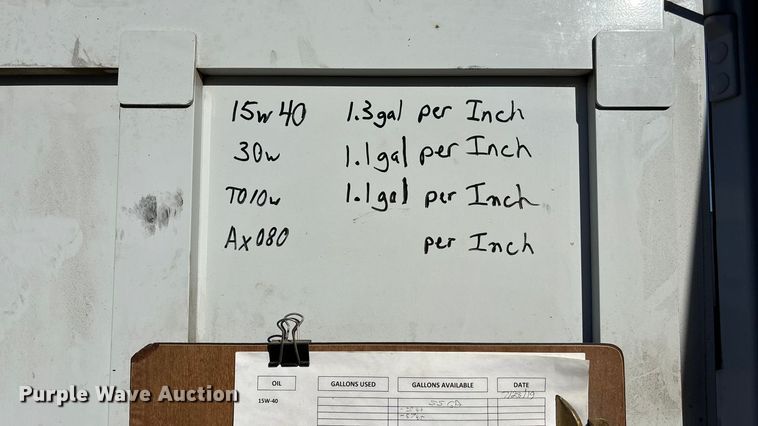 15w40 1.3gal per Inch
30w 1.1gal per Inch
TO10w 1.1gal per Inch
Ax080 per Inch
OIL GALLONS USED GALLONS AVAILABLE DATE
15W-40
Purple Wave Auction®